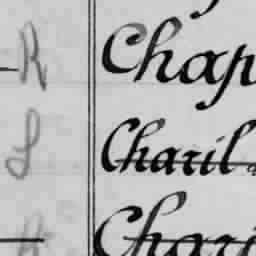 R Chap
L Charil
Chari